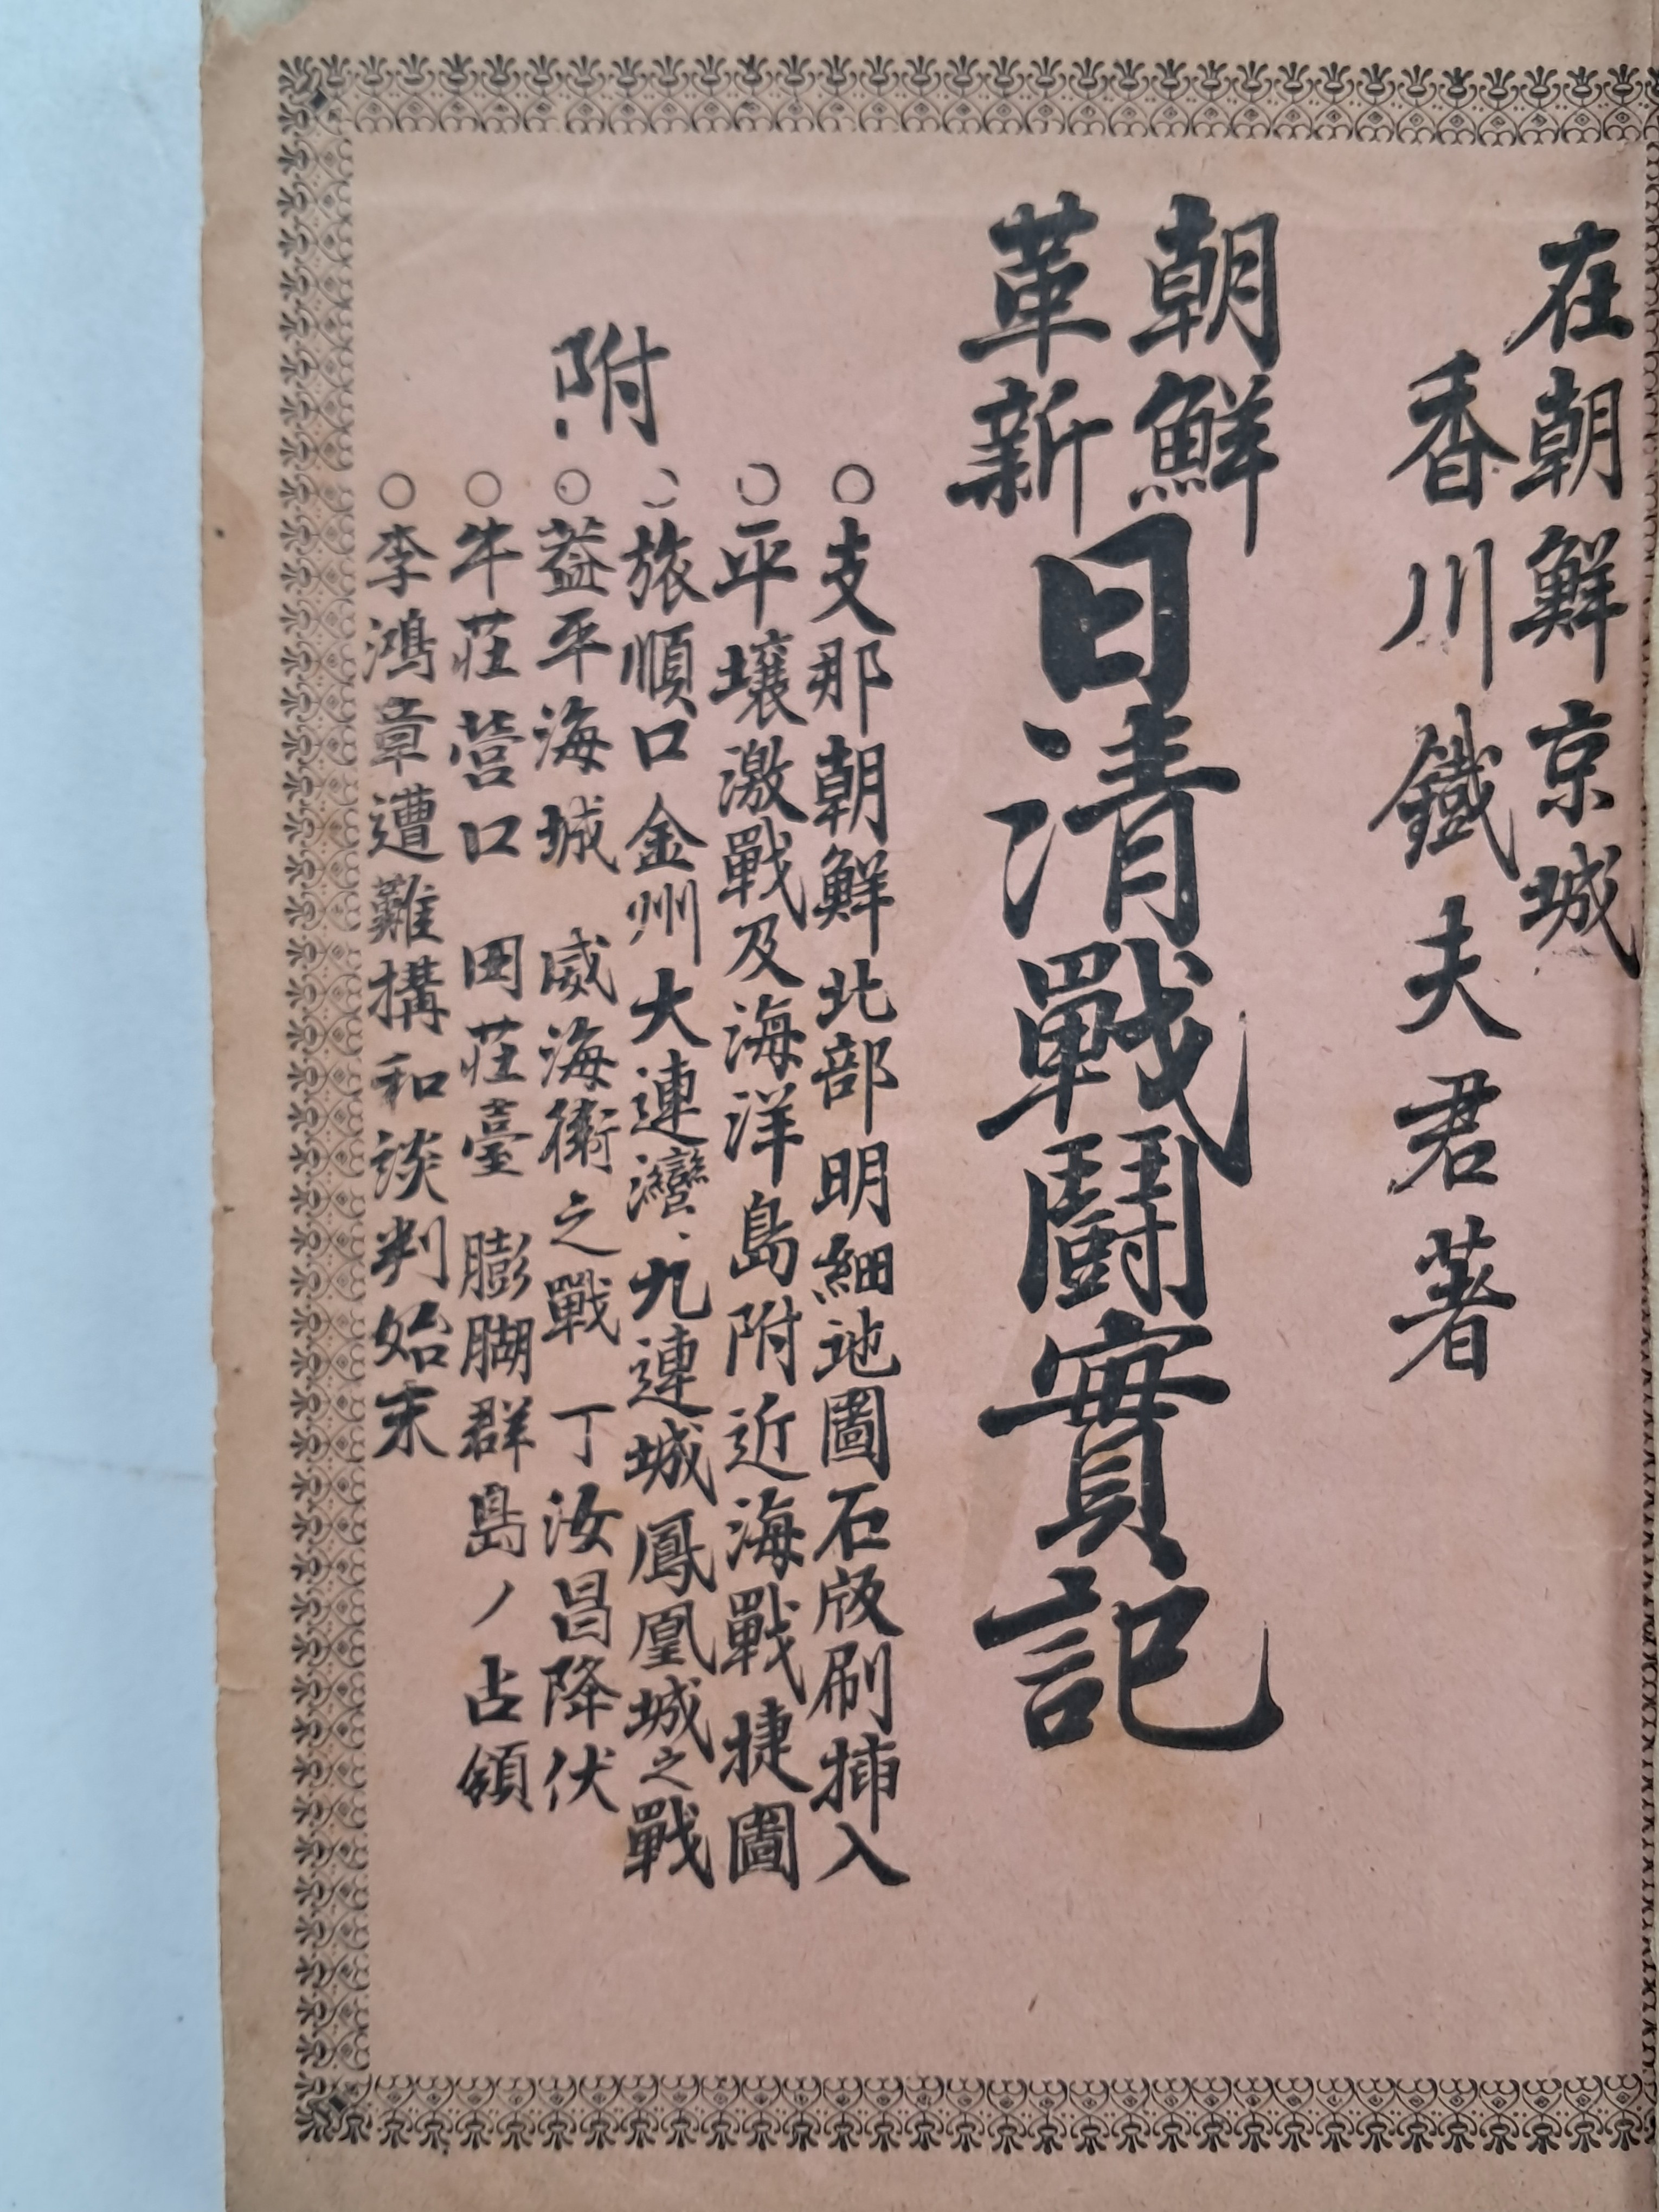 在朝鮮京城
香川鐵夫君著
朝鮮
革新
日清戰鬪實記
附
○支那朝鮮北部明細地圖石版刷挿入
○平壤激戰及海洋島附近海戰捷圖
○旅順口金州大連灣、九連城鳳凰城之戰
○蓋平海城 威海衛之戰 丁汝昌降伏
○牛莊營口 田莊臺 膨湖群島ノ占領
○李鴻章遭難搆和談判始末